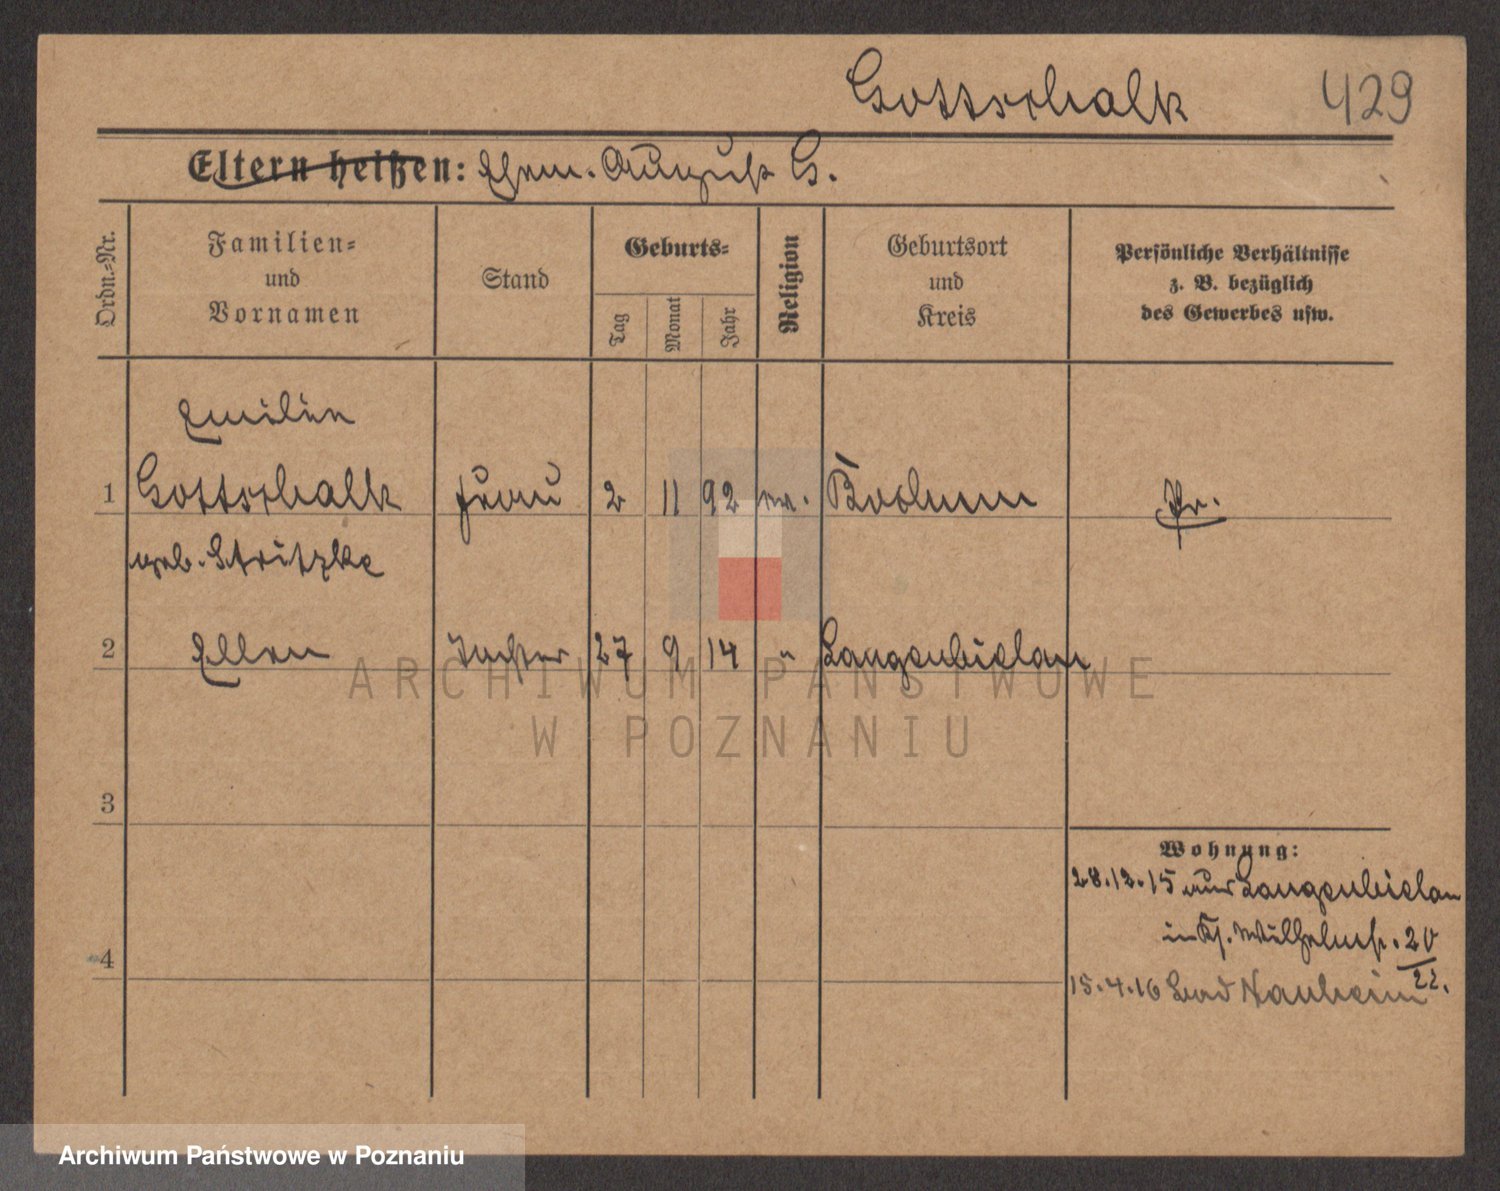 Gottschalk 429
Eltern heißen: Ehem. August G.
Ordn.-Nr.
Familien-
und
Vornamen
Stand
Geburts-
Tag
Monat
Jahr
Religion
Geburtsort
und
Kreis
Persönliche Verhältnisse
z. B. bezüglich
des Gewerbes usw.
Emilie
1 Gottschalk Frau 2 11 92 ev. Bochum Pr.
geb. Stritzke
2 Ellen Tochter 27 9 14 " Langenbielau
ARCHIWUM PAŃSTWOWE
W POZNANIU
3
Wohnung:
28.12.15 aus Langenbielau
in Wilhelmstr. 20/22.
4
15.4.16 Bad Nauheim
Archiwum Państwowe w Poznaniu